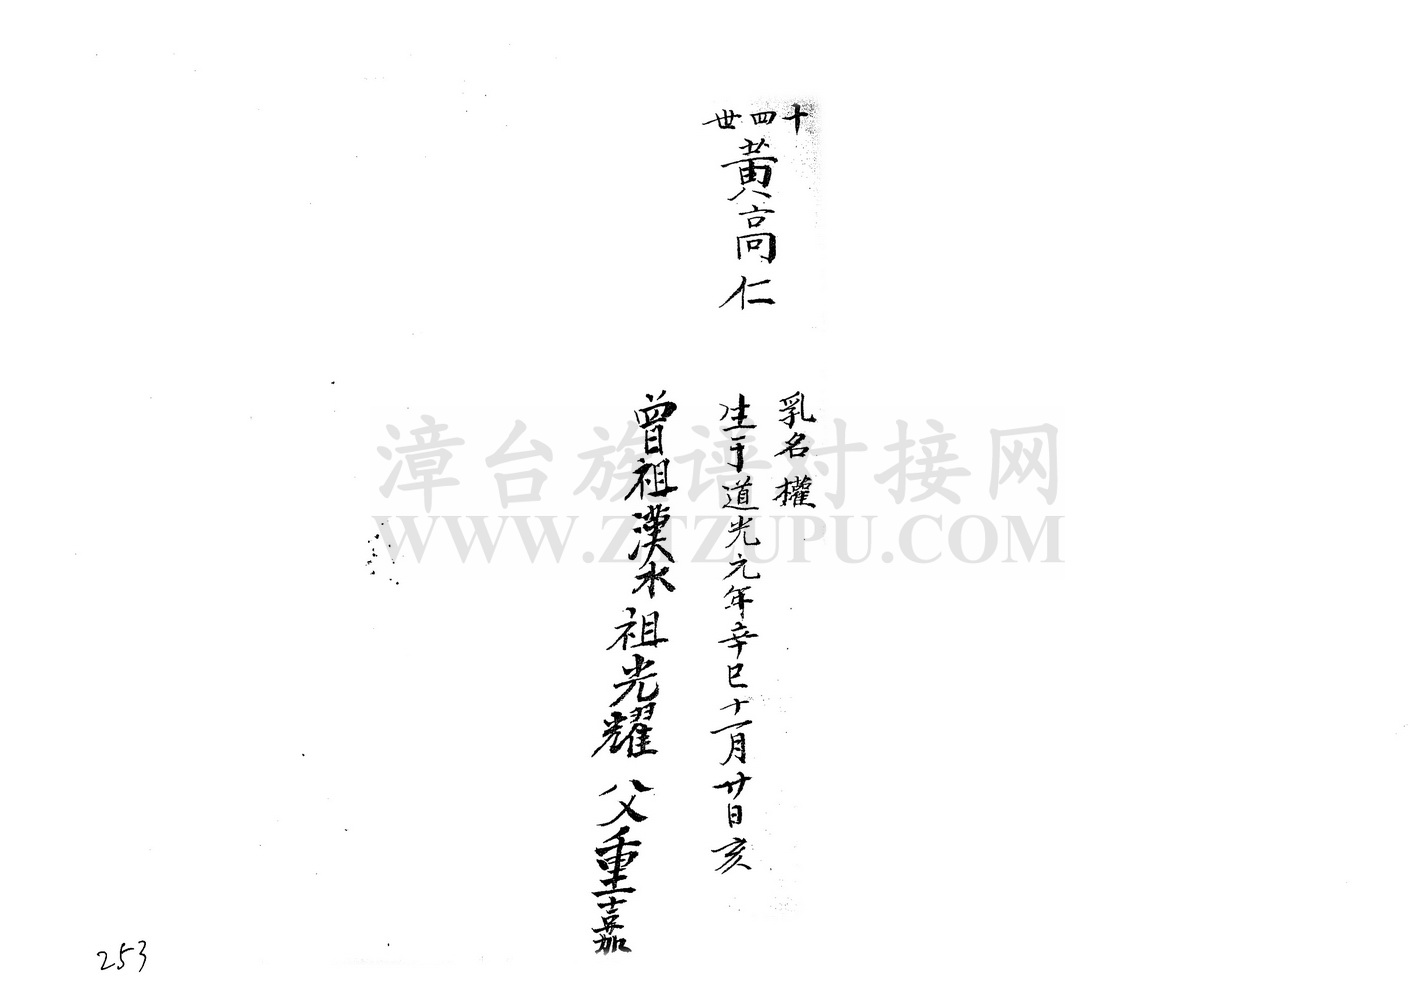 十四世
黄高仁
乳名權
生于道光元年辛巳十一月廿日亥
曾祖漢水祖光耀父重嘉
漳台族谱对接网
WWW.ZTZUPU.COM
253